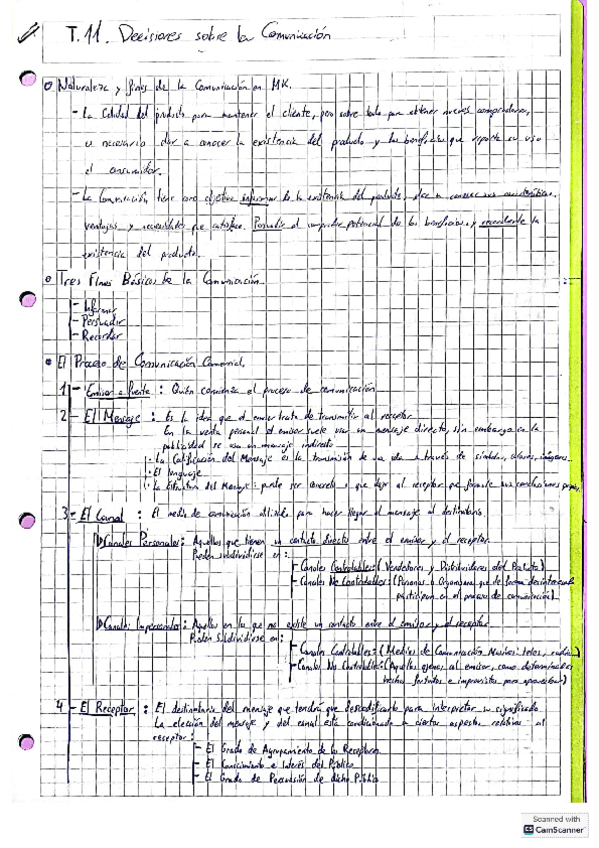 T.11. Decisiones sobre la Comunicación
Naturaleza y fines de la Comunicación en MK.
- La Calidad del producto para mantener el cliente, pero sobre todo para obtener nuevos compradores,
es necesario dar a conocer la existencia del producto y los beneficios que reporta su uso
al consumidor.
- La Comunicación tiene como objetivo informar de la existencia del producto, dar a conocer sus características,
ventajas y necesidades que satisface. Persuadir al comprador potencial de los beneficios, y recordarle la
existencia del producto.
Tres Fines Básicos de la Comunicación
- Informar
- Persuadir
- Recordar
El Proceso de Comunicación Comercial.
1 - Emisor o fuente : Quien comienza el proceso de comunicación
2 - El Mensaje : Es la idea que el emisor trata de transmitir al receptor
En la venta personal el emisor suele usar un mensaje directo, sin embargo en la
publicidad se usa un mensaje indirecto
· La Codificación del Mensaje es la transmisión de una idea a través de símbolos, colores, imágenes.
· El lenguaje
· La Estructura del Mensaje : puede ser concreto o que deje al receptor que formule sus conclusiones propias.
3 - El Canal : El medio de comunicación utilizado para hacer llegar el mensaje al destinatario.
Canales Personales : Aquellos que tienen un contacto directo entre el emisor y el receptor.
Pueden subdividirse en :
- Canales Controlables : ( Vendedores y Distribuidores del Producto )
- Canales No Controlables : ( Personas u Organismos que de forma
participan en el proceso de comunicación )
Canales Impersonales : Aquellos en los que no existe un contacto entre el emisor y el receptor
Pueden Subdividirse en :
- Canales Controlables : ( Medios de Comunicación Masivos : teles, radios )
- Canales No Controlables : ( Aquellos ajenos al emisor, como determinados
hechos fortuitos e imprevistos )
4 - El Receptor : El destinatario del mensaje que tendrá que descodificarlo para interpretar su significado.
La elección del mensaje y del canal está condicionado a ciertos aspectos relativos al
receptor :
- El Grado de Agrupamiento de los Receptores
- El Conocimiento e Interés del Público
- El Grado de Persuasión de dicho Público
Scanned with
CS CamScanner